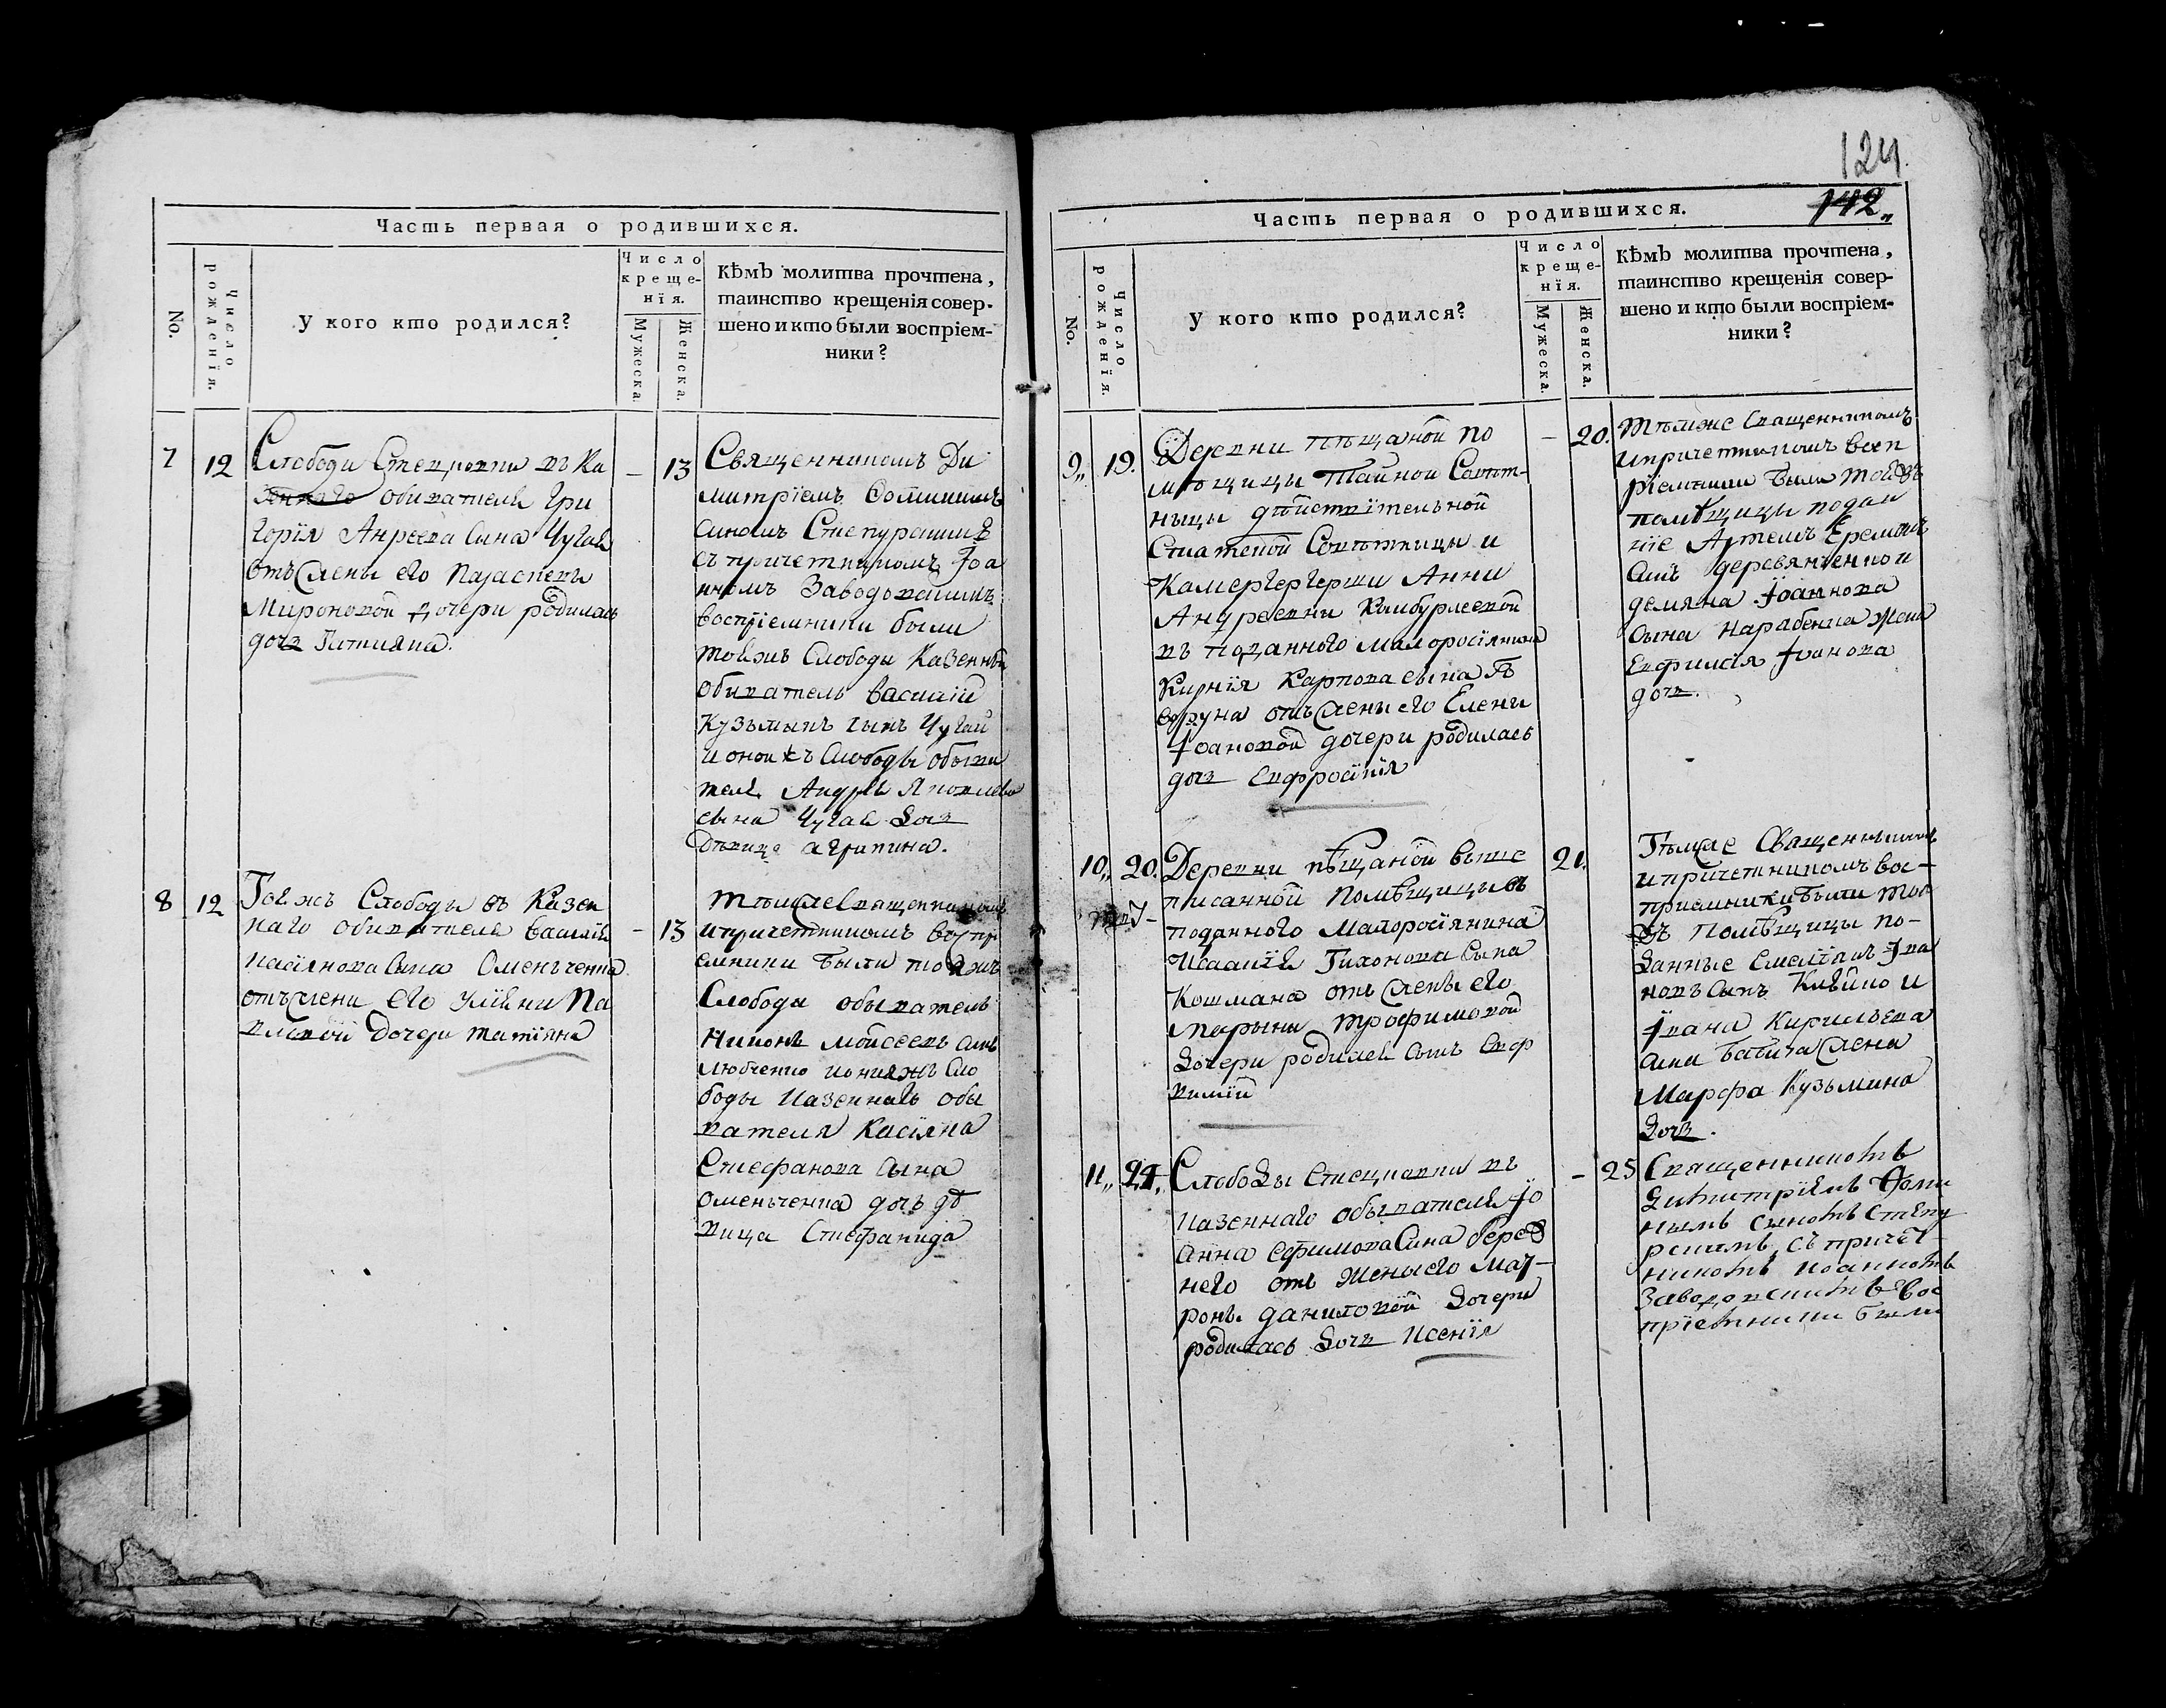 Часть первая о родившихся.
No.
Число рожденія.
У кого кто родился?
Число
креще-
нїя.
Мужеска.
Женска.
Кѣмъ молитва прочтена,
таинство крещенія совер-
шено и кто были воспріем-
ники?
7
12
Слободи Стецковки въ Ка
обивателя Гри
горія Анреева Сина Чугая
отъ жены его Параскевы
Мироновой дочери родилась
дочь Татияна.
—
13
Священникомъ Ди
митріемъ Фоминимъ
синомъ Степурскимъ
съ причетникомъ Іоа
нномъ Заводовскимъ
воспріемники были
тояжъ Слободы Казенный
обиватель Василій
Кузьминъ сынъ Чугай
и оной жъ Слободы обыва
теля Андрея Яковлева
сына Чугая дочь
Дѣвица Агрипина.
8
12
Тояжъ Слободы въ Казен
наго обивателя Василія
Касіянова Сина Оменченка
отъ жени его Уліяни Па
вловой дочери татіяна
—
13
Тѣмже Священникомъ
и причетникомъ воспрі
емники были тояжъ
Слободы обыватель
Никонъ Мойсеевъ синъ
Любченко и онияжъ Сло
боды Казеннаго обы
вателя Касіяна
Стефанова Сына
оменьченка дочь дѣ
вица Стефанида
124.
142,,
Часть первая о родившихся.
No.
Число рожденія.
У кого кто родился?
Число
креще-
нїя.
Мужеска.
Женска.
Кѣмъ молитва прочтена,
таинство крещенія совер-
шено и кто были воспріем-
ники?
9,,
19.
Деревни пѣщаной по
мѣщицы Тайной Совѣт-
ницы дѣйствїтельной
Статской Совѣтницы и
Камергергерши Анни
Андреевни Камбурлеевой
въ поданного малоросіянина
Карпова сына
отъ жены его Елени
Іоановой дочери родилась
дочь Евфросінія
—
20.
Тѣмже Священникомъ
и причетникомъ восп
ріемники были тоей жъ
помѣщицы подан
ніе Артемъ Еремѣевъ
синъ деревянченко и
демяна Іоаннова
сына Нарабенка жена
Евфимія Іванова
дочь.
10,,
20.
Деревни пѣщаной выше
писанной Помѣщицы въ
поданного Малоросіянина
Исаакія Тихонова Сына
Кошмана отъ жены его
Марыны Трофимовой
Дочери родился сынъ Евф
вимій
21.
Тѣмже Священникомъ
и причетникомъ вос-
пріемники были тоя
жъ Помѣщицы по-
данные Емеліянъ Іва
новъ сынъ и
Івана Кирильева
сина жена
Марфа Кузьмина
Дочь.
11,,
24,,
Слободы Стецковки въ
казеннаго обывателя Іо
анна Ефимова Сина Серед
него отъ жены его Мат-
роны Даниловой Дочери
родилась Дочь Ксенія
—
25
Священникомъ
Димитріемъ Фоми
нымъ сыномъ Степу
рскимъ, съ причет-
никомъ Іоанномъ
Заводовскимъ вос
пріемники были